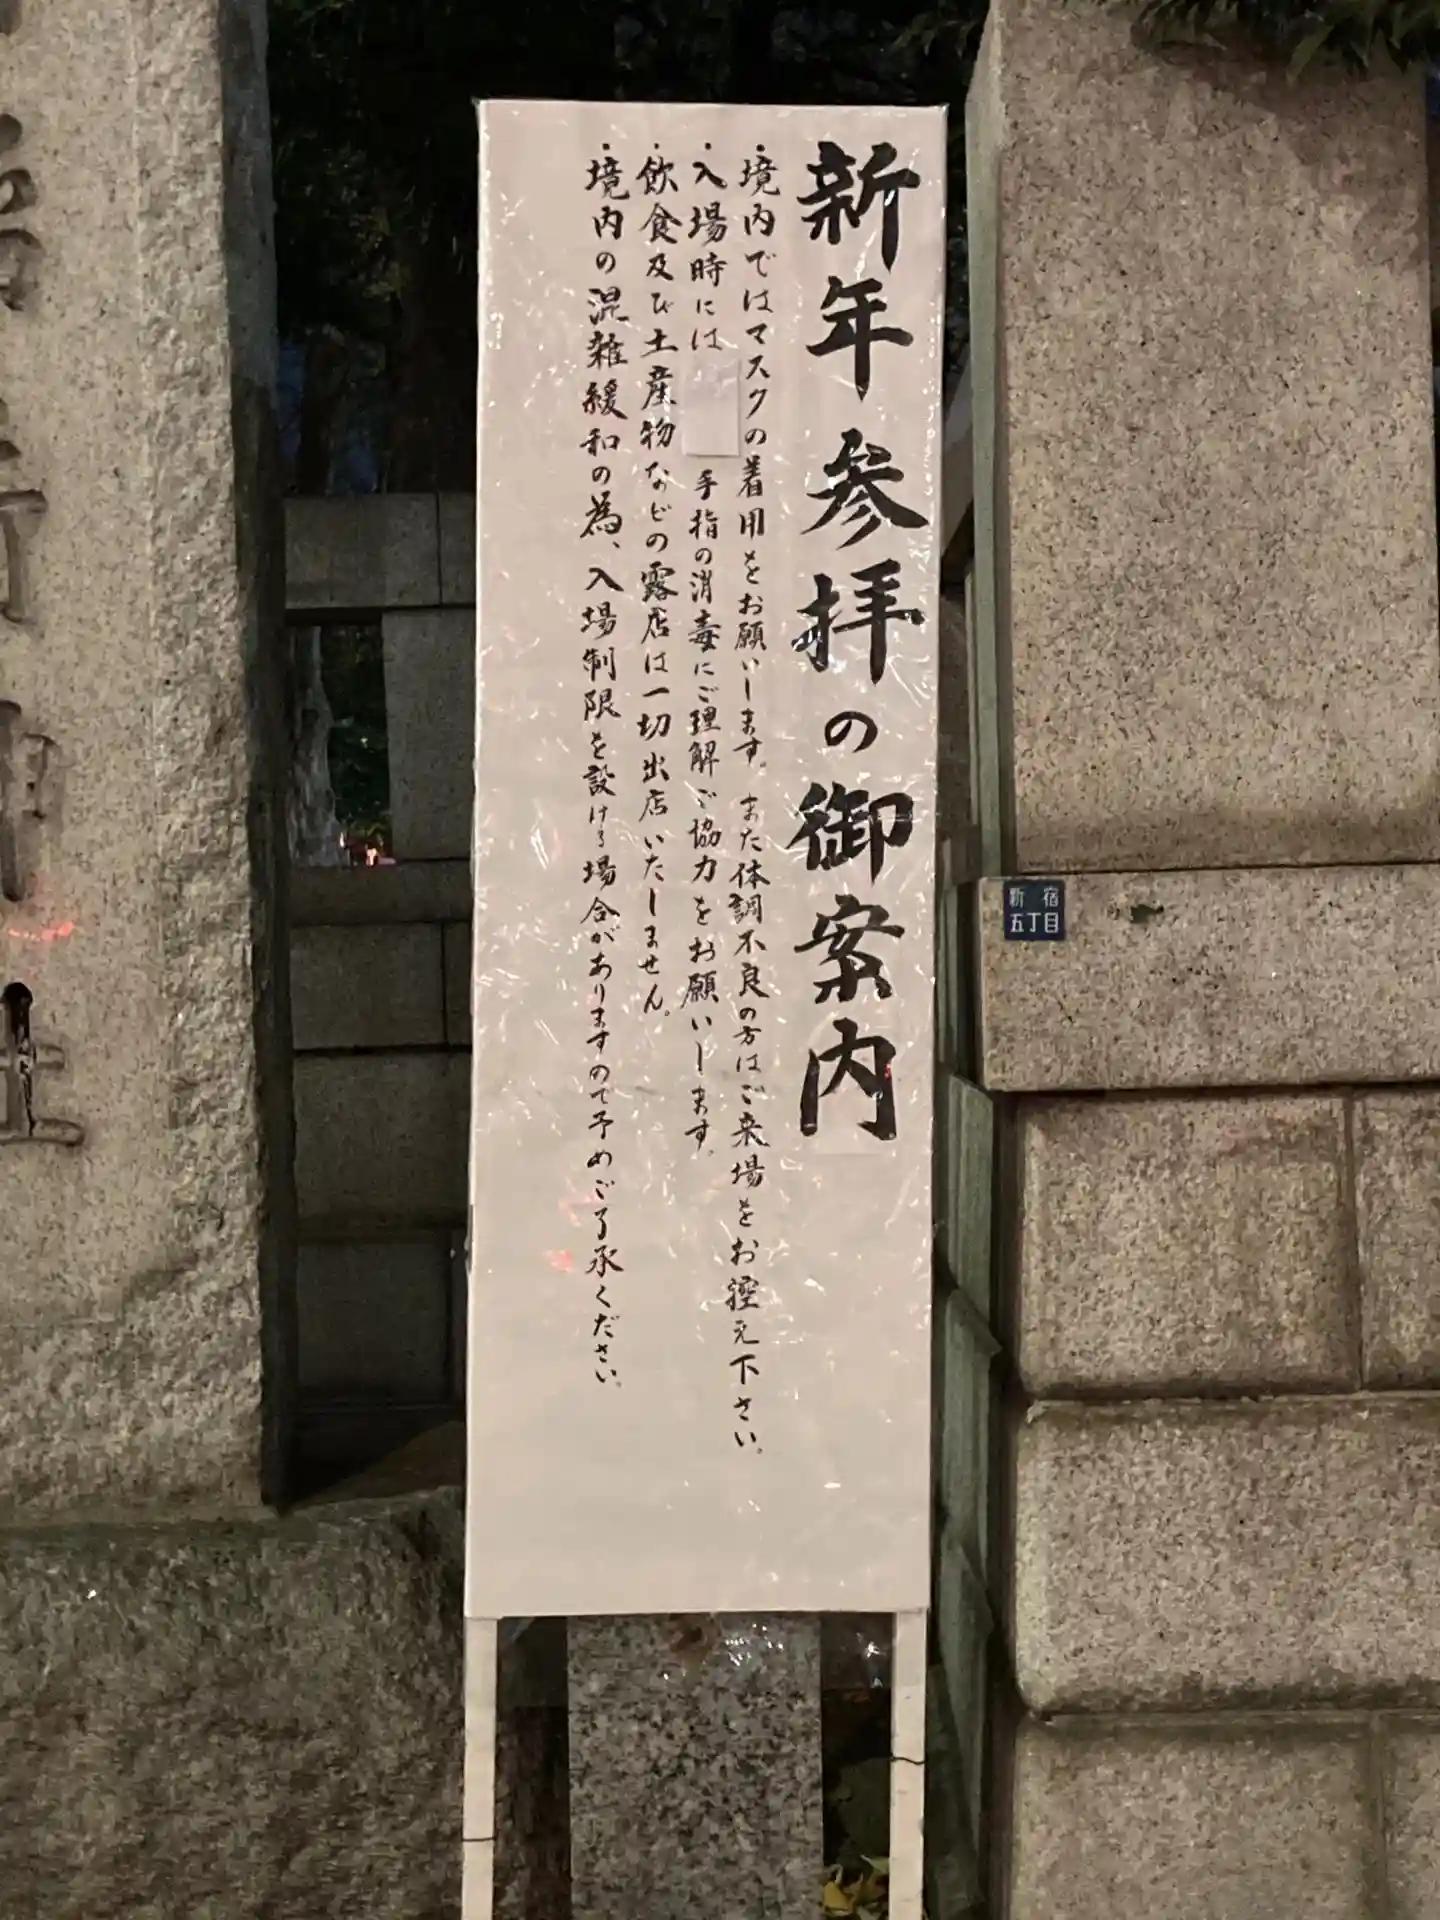 新年参拝の御案内
・境内ではマスクの着用をお願いします。また体調不良の方はご来場をお控え下さい。
・入場時には手指の消毒にご理解ご協力をお願いします。
・飲食及び土産物などの露店は一切出店いたしません。
・境内の混雑緩和の為、入場制限を設ける場合がありますので予めご了承ください。
新宿
五丁目